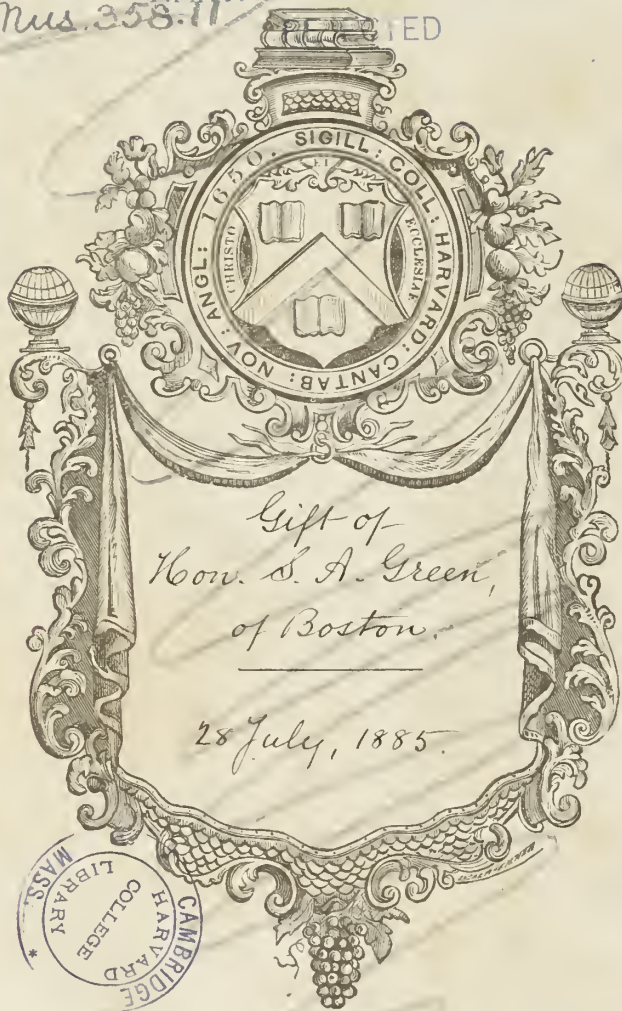 Mus.358.11
TED
SIGILL: COLL: HARVARD: CANTAB: NOV: ANGL: 1650.
CHRISTO
ET
ECCLESIAE
Gift of
Hon. S. A. Green,
of Boston.
28 July, 1885.
HARVARD
COLLEGE
LIBRARY
CAMBRIDGE
MASS. *